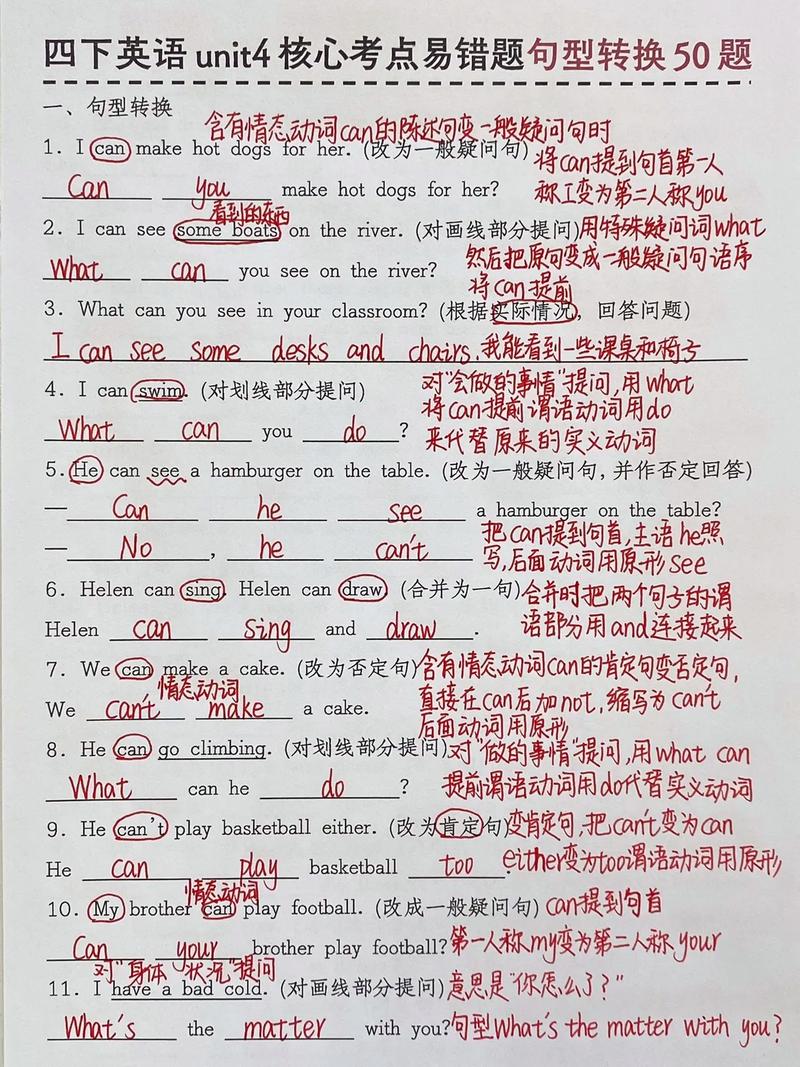 四下英语 unit4 核心考点易错题句型转换 50 题
一、句型转换
含有情态动词can的陈述句变一般疑问句时
1. I can make hot dogs for her. (改为一般疑问句) 将can提到句首第一人
Can you make hot dogs for her? 称I变为第二人称you
看到的东西
2. I can see some boats on the river. (对画线部分提问) 用特殊疑问词what
What can you see on the river? 然后把原句变成一般疑问句语序
将can提前
3. What can you see in your classroom? (根据实际情况, 回答问题)
I can see some desks and chairs. 我能看到一些课桌和椅子
4. I can swim. (对划线部分提问) 对“会做的事情”提问,用what
将can提前谓语动词用do
What can you do? 来代替原来的实义动词
5. He can see a hamburger on the table. (改为一般疑问句, 并作否定回答)
— Can he see a hamburger on the table?
把can提到句首,主语he照
— No, he can't 写,后面动词用原形see
6. Helen can sing. Helen can draw. (合并为一句) 合并时把两个句子的谓
Helen can sing and draw. 语部分用and连接起来
7. We can make a cake. (改为否定句) 含有情态动词can的肯定句变否定句,
情态动词
We can't make a cake. 直接在can后加not,缩写为can't
后面动词用原形
8. He can go climbing. (对划线部分提问) 对“做的事情”提问,用what can
What can he do? 提前谓语动词用do代替实义动词
9. He can't play basketball either. (改为肯定句) 变肯定句,把can't变为can
He can play basketball too. either变为too谓语动词用原形
情态动词
10. My brother can play football. (改成一般疑问句) can提到句首
Can your brother play football? 第一人称my变为第二人称your
对“身体状况”提问
11. I have a bad cold. (对画线部分提问) 意思是“你怎么了?”
What's the matter with you? 句型What's the matter with you?